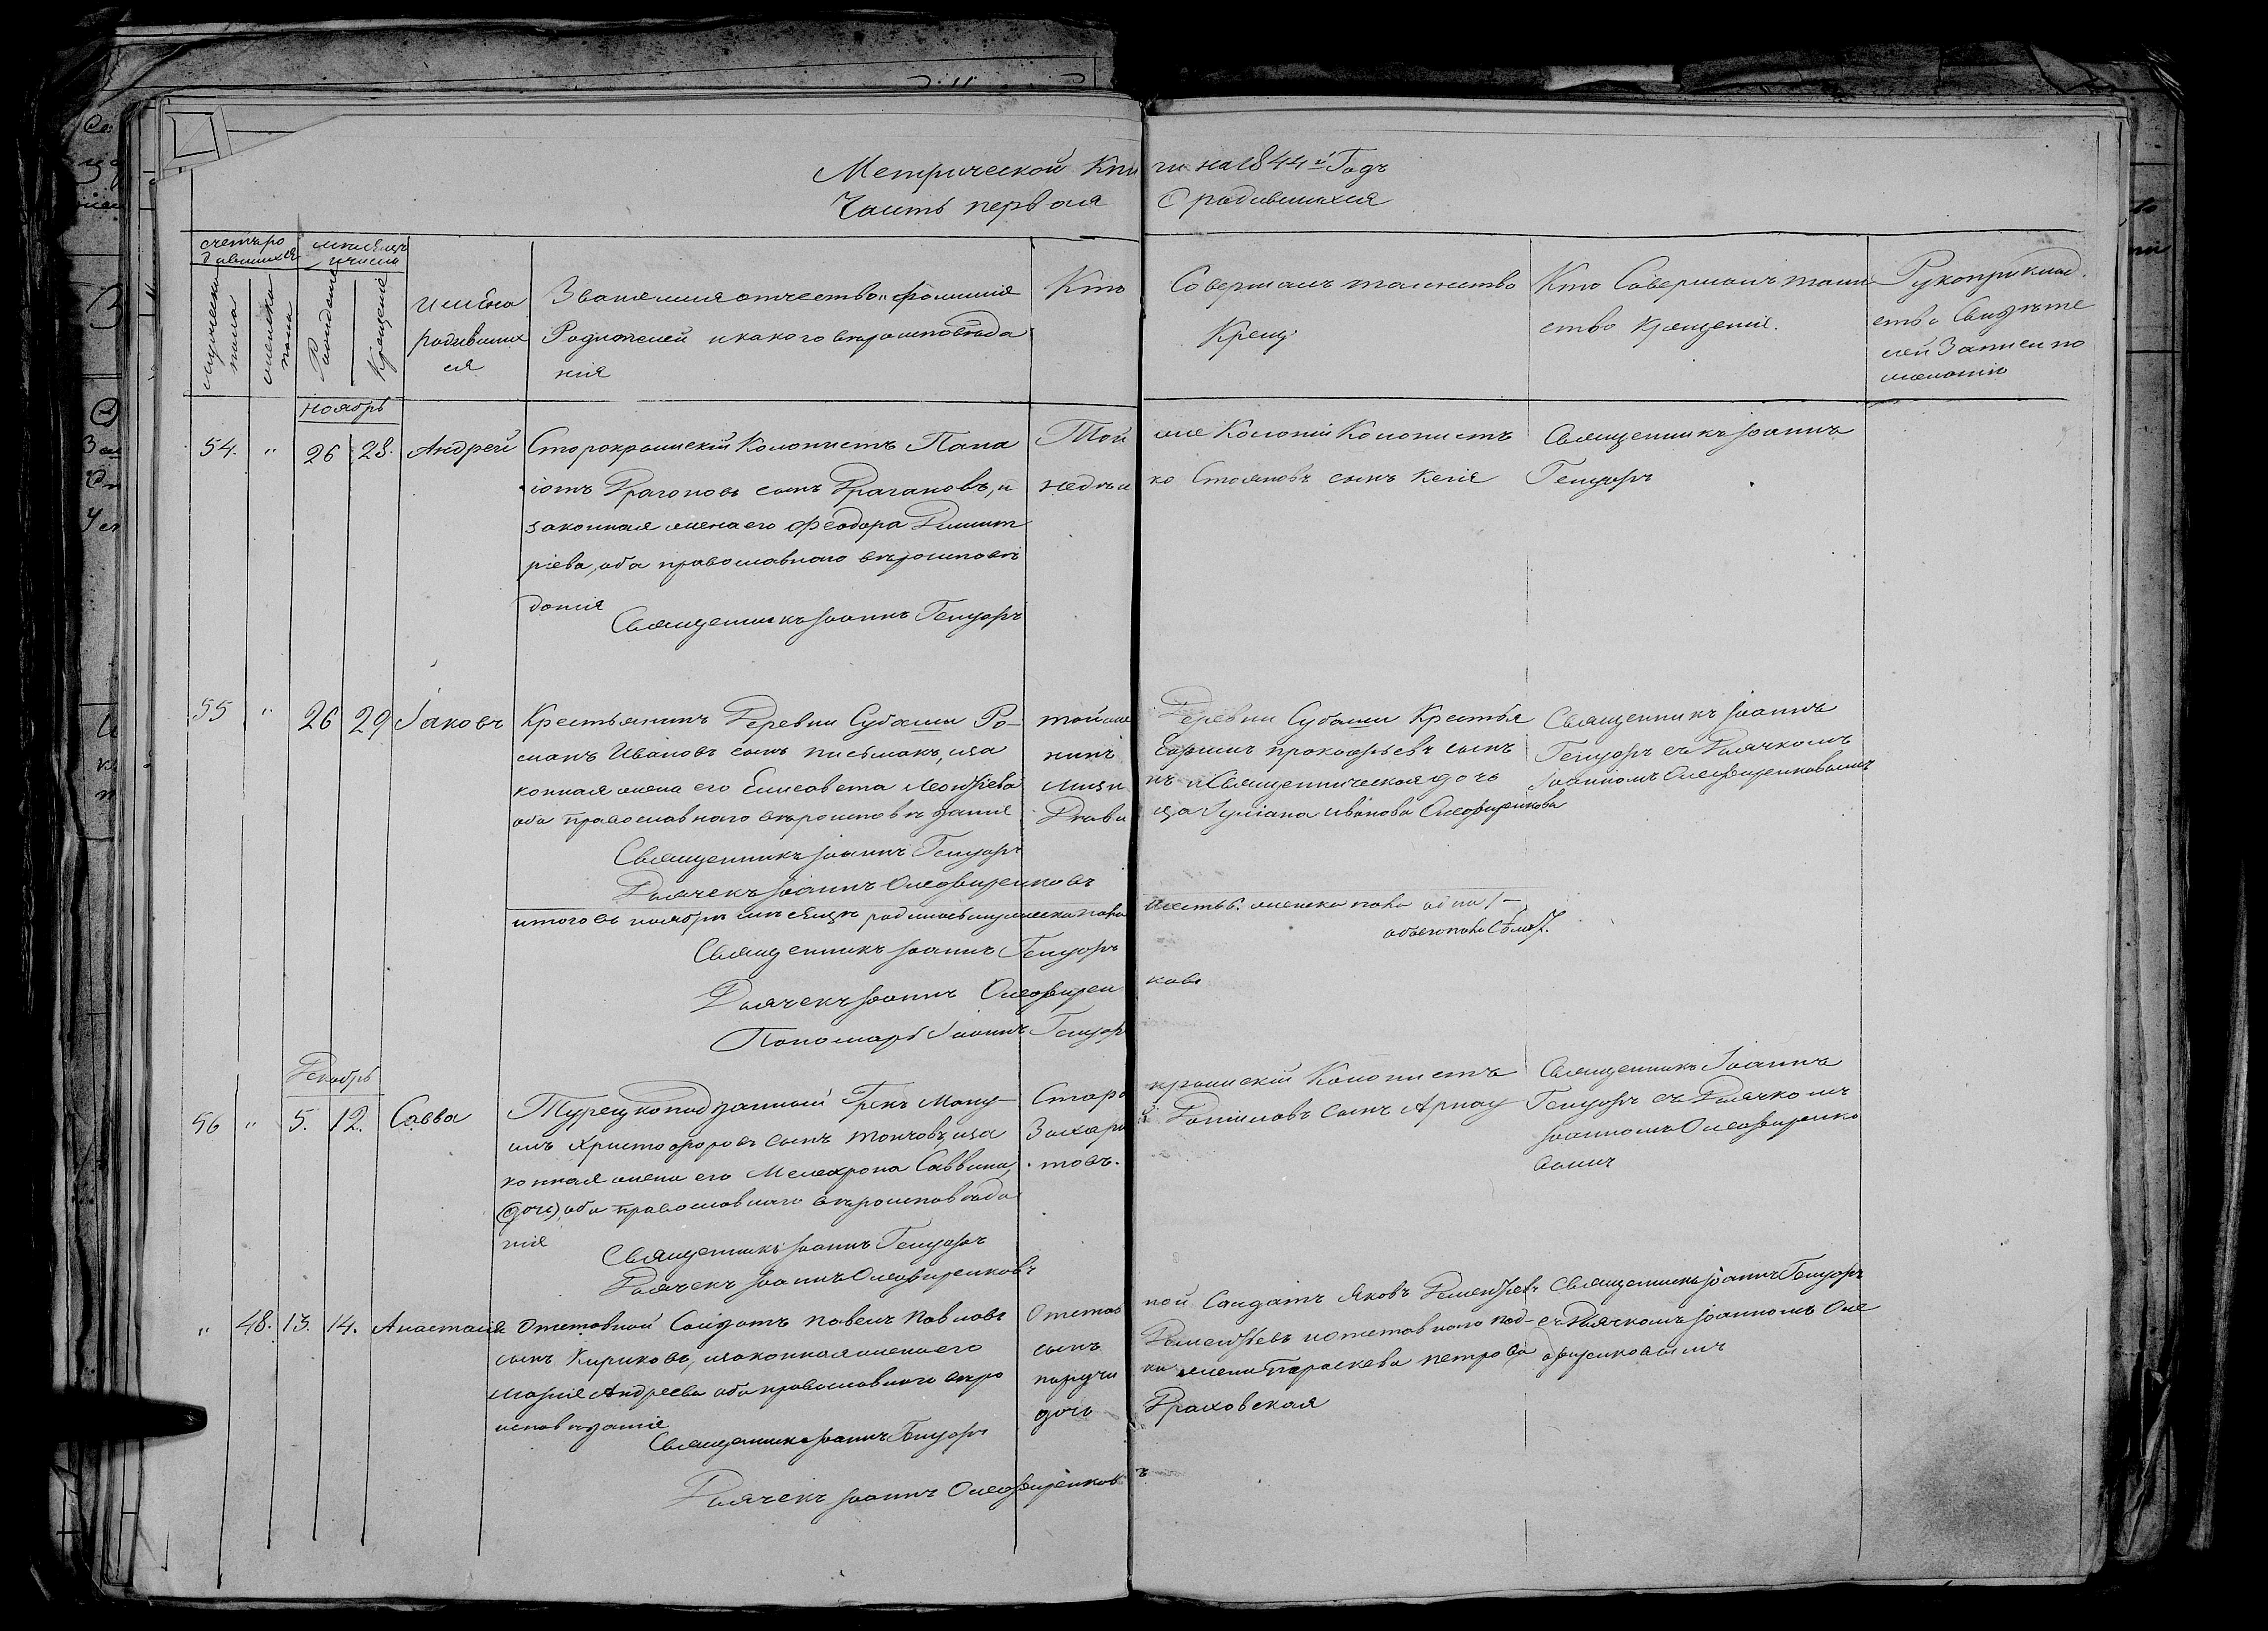 Метрической Книги на 1844й Годъ
Часть первая О родившихся
счетъ родившихся
мужеска пола
женска пола
месяцъ и числа
Рождения
Крещение
Имена родившихся
Звание имя отчество и фамилия
Родителей и какого вероисповедания
Кто Совершалъ таинство
Крещ:
Кто Совершалъ таинство Крещения.
Рукоприкладство Свидете
лей Записи по
желанию
ноябрь
54. " 26 28. Андрей
Старокрымский Колонистъ Пана
iотъ Драгановъ сынъ Драгановъ, и
законная жена его Феодора Димит
рiева, оба православнаго вероисповѣ
дания
Священникъ Iоаннъ
Той же Колонiи Колонистъ
недѣлко Стояновъ сынъ Келя
Священникъ Iоаннъ
55 " 26 29 Iаковъ
Крестьянинъ Деревни Субаши Ро-
манъ Ивановъ сынъ письмакъ, иза
конная жена его Елисавета Леонтiева
оба православнаго вероисповѣдания
Священникъ Iоаннъ
Дьячекъ Iоаннъ
той же Деревни Субаши Крестья
нинъ прокофьевъ сынъ
и Священническая дочь
Дѣвица Iулiана иванова
Священникъ Iоаннъ
съ Дьячкомъ
Iоанномъ
итого въ ноябрѣ мѣсяцѣ родилось мужеска пола шесть 6. женска пола одна 1
обоего пола Семь 7.
Священникъ Iоаннъ
Дьячекъ Iоаннъ
Пономарь Iоаннъ
Декабрь
56 " 5. 12. Савва
Турецко подданный Грекъ Ману
илъ Христофоровъ сынъ Тончовъ, иза
конная жена его Мелахрона Саввина
(дочь), оба православнаго вероисповѣда
нiя
Священникъ Iоаннъ
Дьячекъ Iоаннъ
Старокрымскiй Колонистъ
Захарiй Даниловъ сынъ Арнаутовъ.
Священникъ Iоаннъ
съ Дьячкомъ
Iоанномъ
" 48. 13. 14. Анастасия
Отставной Солдатъ павелъ павловъ
сынъ Кириковъ, изаконная жена его
Марiя Андреева оба православнаго веро
исповѣдания
Священникъ Iоаннъ
Дьячекъ Iоаннъ
Отставной Солдатъ Яковъ Дементьевъ
сынъ Дементьевъ и отставнаго под-
поручика жена Параскева петрова
дочь Драховская
Священникъ Iоаннъ
съ Дьячкомъ Iоанномъ